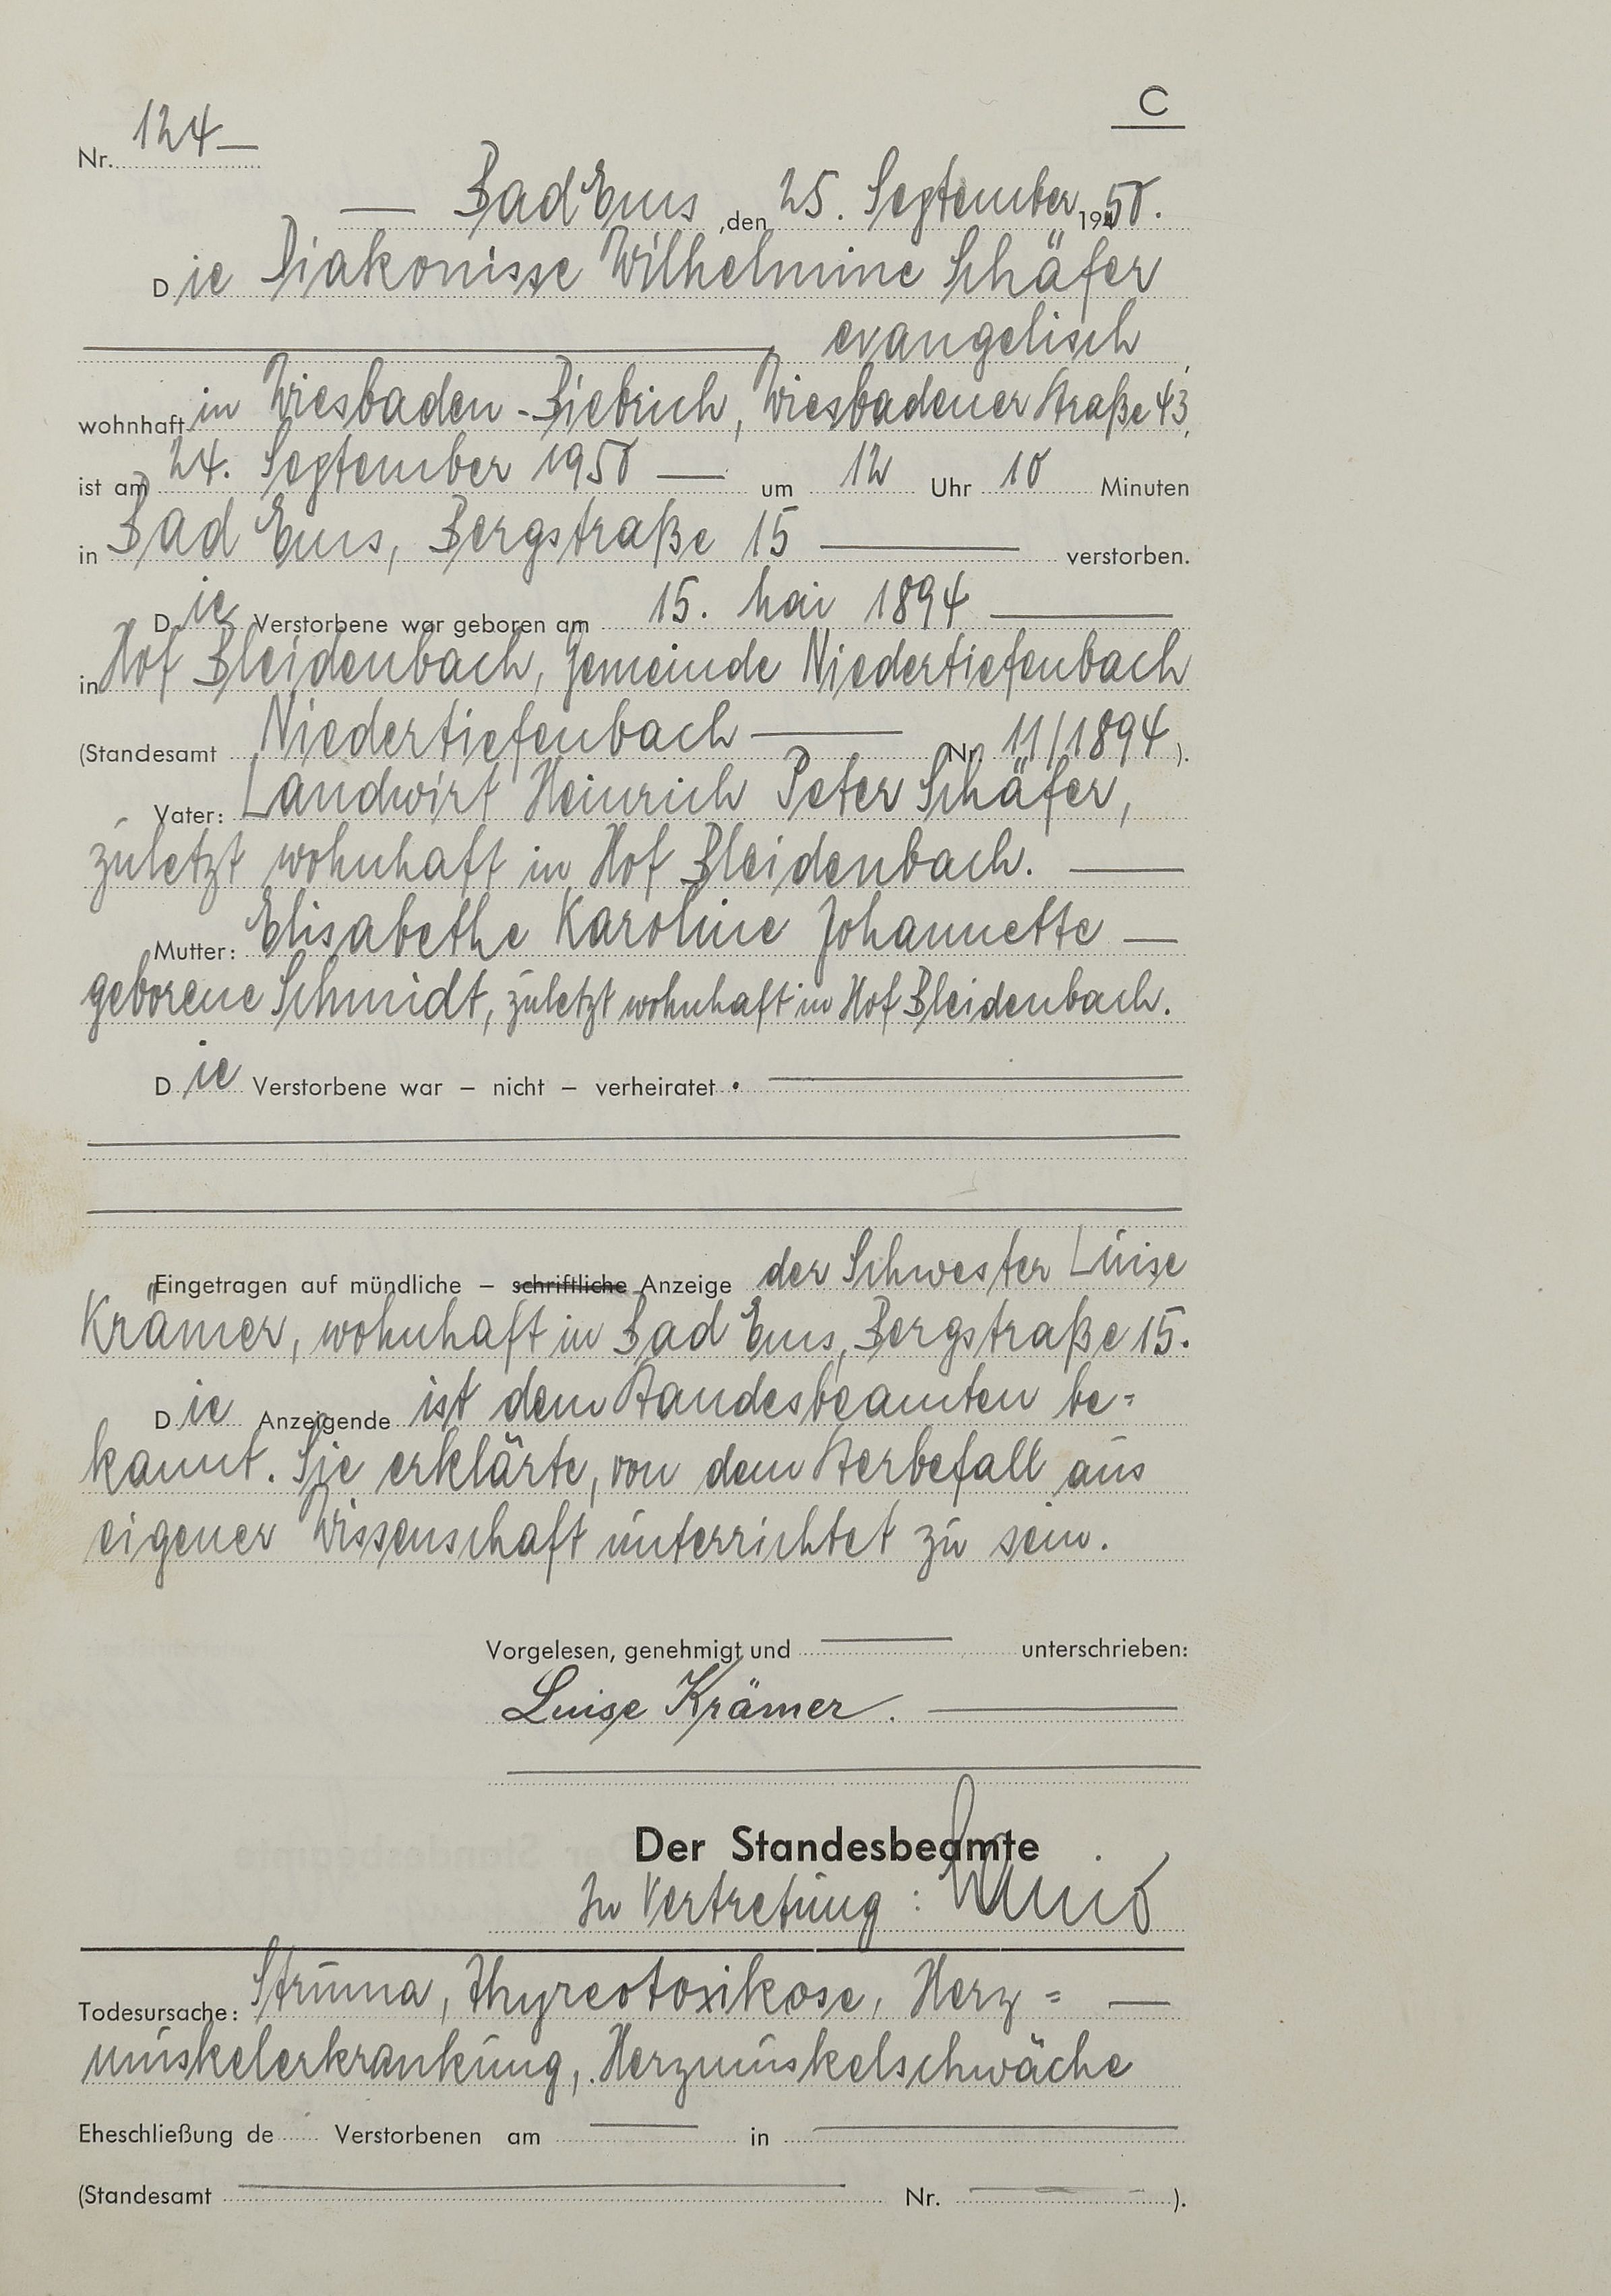 C
Nr. 124
Bad Ems, den 25. September 1950.
Die Diakonisse Wilhelmine Schäfer
evangelisch,
wohnhaft in Wiesbaden-Biebrich, Wiesbadener Straße 43,
ist am 24. September 1950 — um 12 Uhr 10 Minuten
in Bad Ems, Bergstraße 15 — verstorben.
Die Verstorbene war geboren am 15. Mai 1894 —
in Hof Bleidenbach, Gemeinde Niedertiefenbach
(Standesamt Niedertiefenbach — Nr. 11/1894).
Vater: Landwirt Heinrich Peter Schäfer,
zuletzt wohnhaft in Hof Bleidenbach. —
Mutter: Elisabethe Karoline Johannette —
geborene Schmidt, zuletzt wohnhaft in Hof Bleidenbach.
Die Verstorbene war – nicht – verheiratet.
Eingetragen auf mündliche – schriftliche Anzeige der Schwester Luise
Krämer, wohnhaft in Bad Ems, Bergstraße 15.
Die Anzeigende ist dem Standesbeamten be=
kannt. Sie erklärte, von dem Sterbefall aus
eigener Wissenschaft unterrichtet zu sein.
Vorgelesen, genehmigt und — unterschrieben:
Luise Krämer. —
Der Standesbeamte
In Vertretung:
Todesursache: Struma, Thyreotoxikose, Herz= —
muskelerkrankung, Herzmuskelschwäche
Eheschließung de Verstorbenen am — in —
(Standesamt — Nr. —).